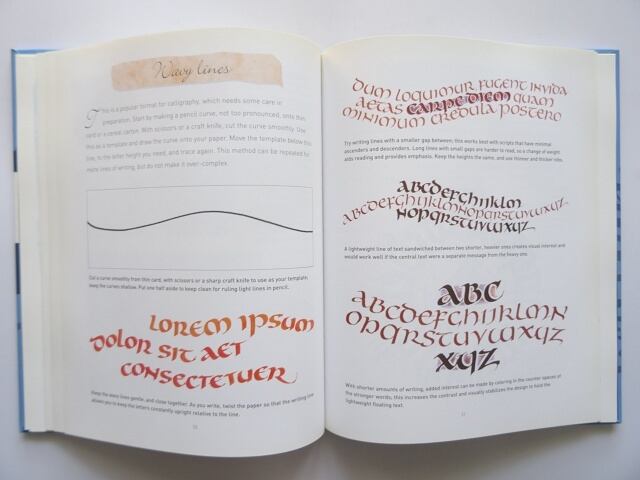 Wavy lines
This is a popular format for calligraphy, which needs some care in
preparation. Start by making a pencil curve, not too pronounced, onto thin
card or a cereal carton. With scissors or a craft knife, cut the curve smoothly. Use
this as a template and draw the curve onto your paper. Move the template below this
line, to the letter height you need, and trace again. This method can be repeated for
more lines of writing, but do not make it over-complex.
Cut a curve smoothly from thin card, with scissors or a sharp craft knife to use as your template;
keep the curves shallow. Put one half aside to keep clean for ruling light lines in pencil.
LOREM IPSUM
DOLOR SIT AET
CONSECTETUER
Keep the wavy lines gentle, and close together. As you write, twist the paper so that the writing line
allows you to keep the letters constantly upright relative to the line.
DUM LOQUIMUR FUGENT INVIDA
AETAS CARPE DIEM QUAM
MINIMUM CREDULA POSTERO
Try writing lines with a smaller gap between; this works best with scripts that have minimal
ascenders and descenders. Long lines with small gaps are harder to read, so a change of weight
aids reading and provides emphasis. Keep the heights the same, and use thinner and thicker nibs.
ABCDEFGHIJKLM
ABCDEFGHIJKLMNOPQRSTUVWXYZ
NOPQRSTUVWXYZ
A lightweight line of text sandwiched between two shorter, heavier ones creates visual interest and
would work well if the central text were a separate message from the heavy one.
ABC
ABCDEFGHIJKLMN
OPQRSTUVWXYZ
XYZ
With shorter amounts of writing, added interest can be made by coloring in the counter spaces of
the stronger words; this increases the contrast and visually stabilizes the design to hold the
lightweight floating text.